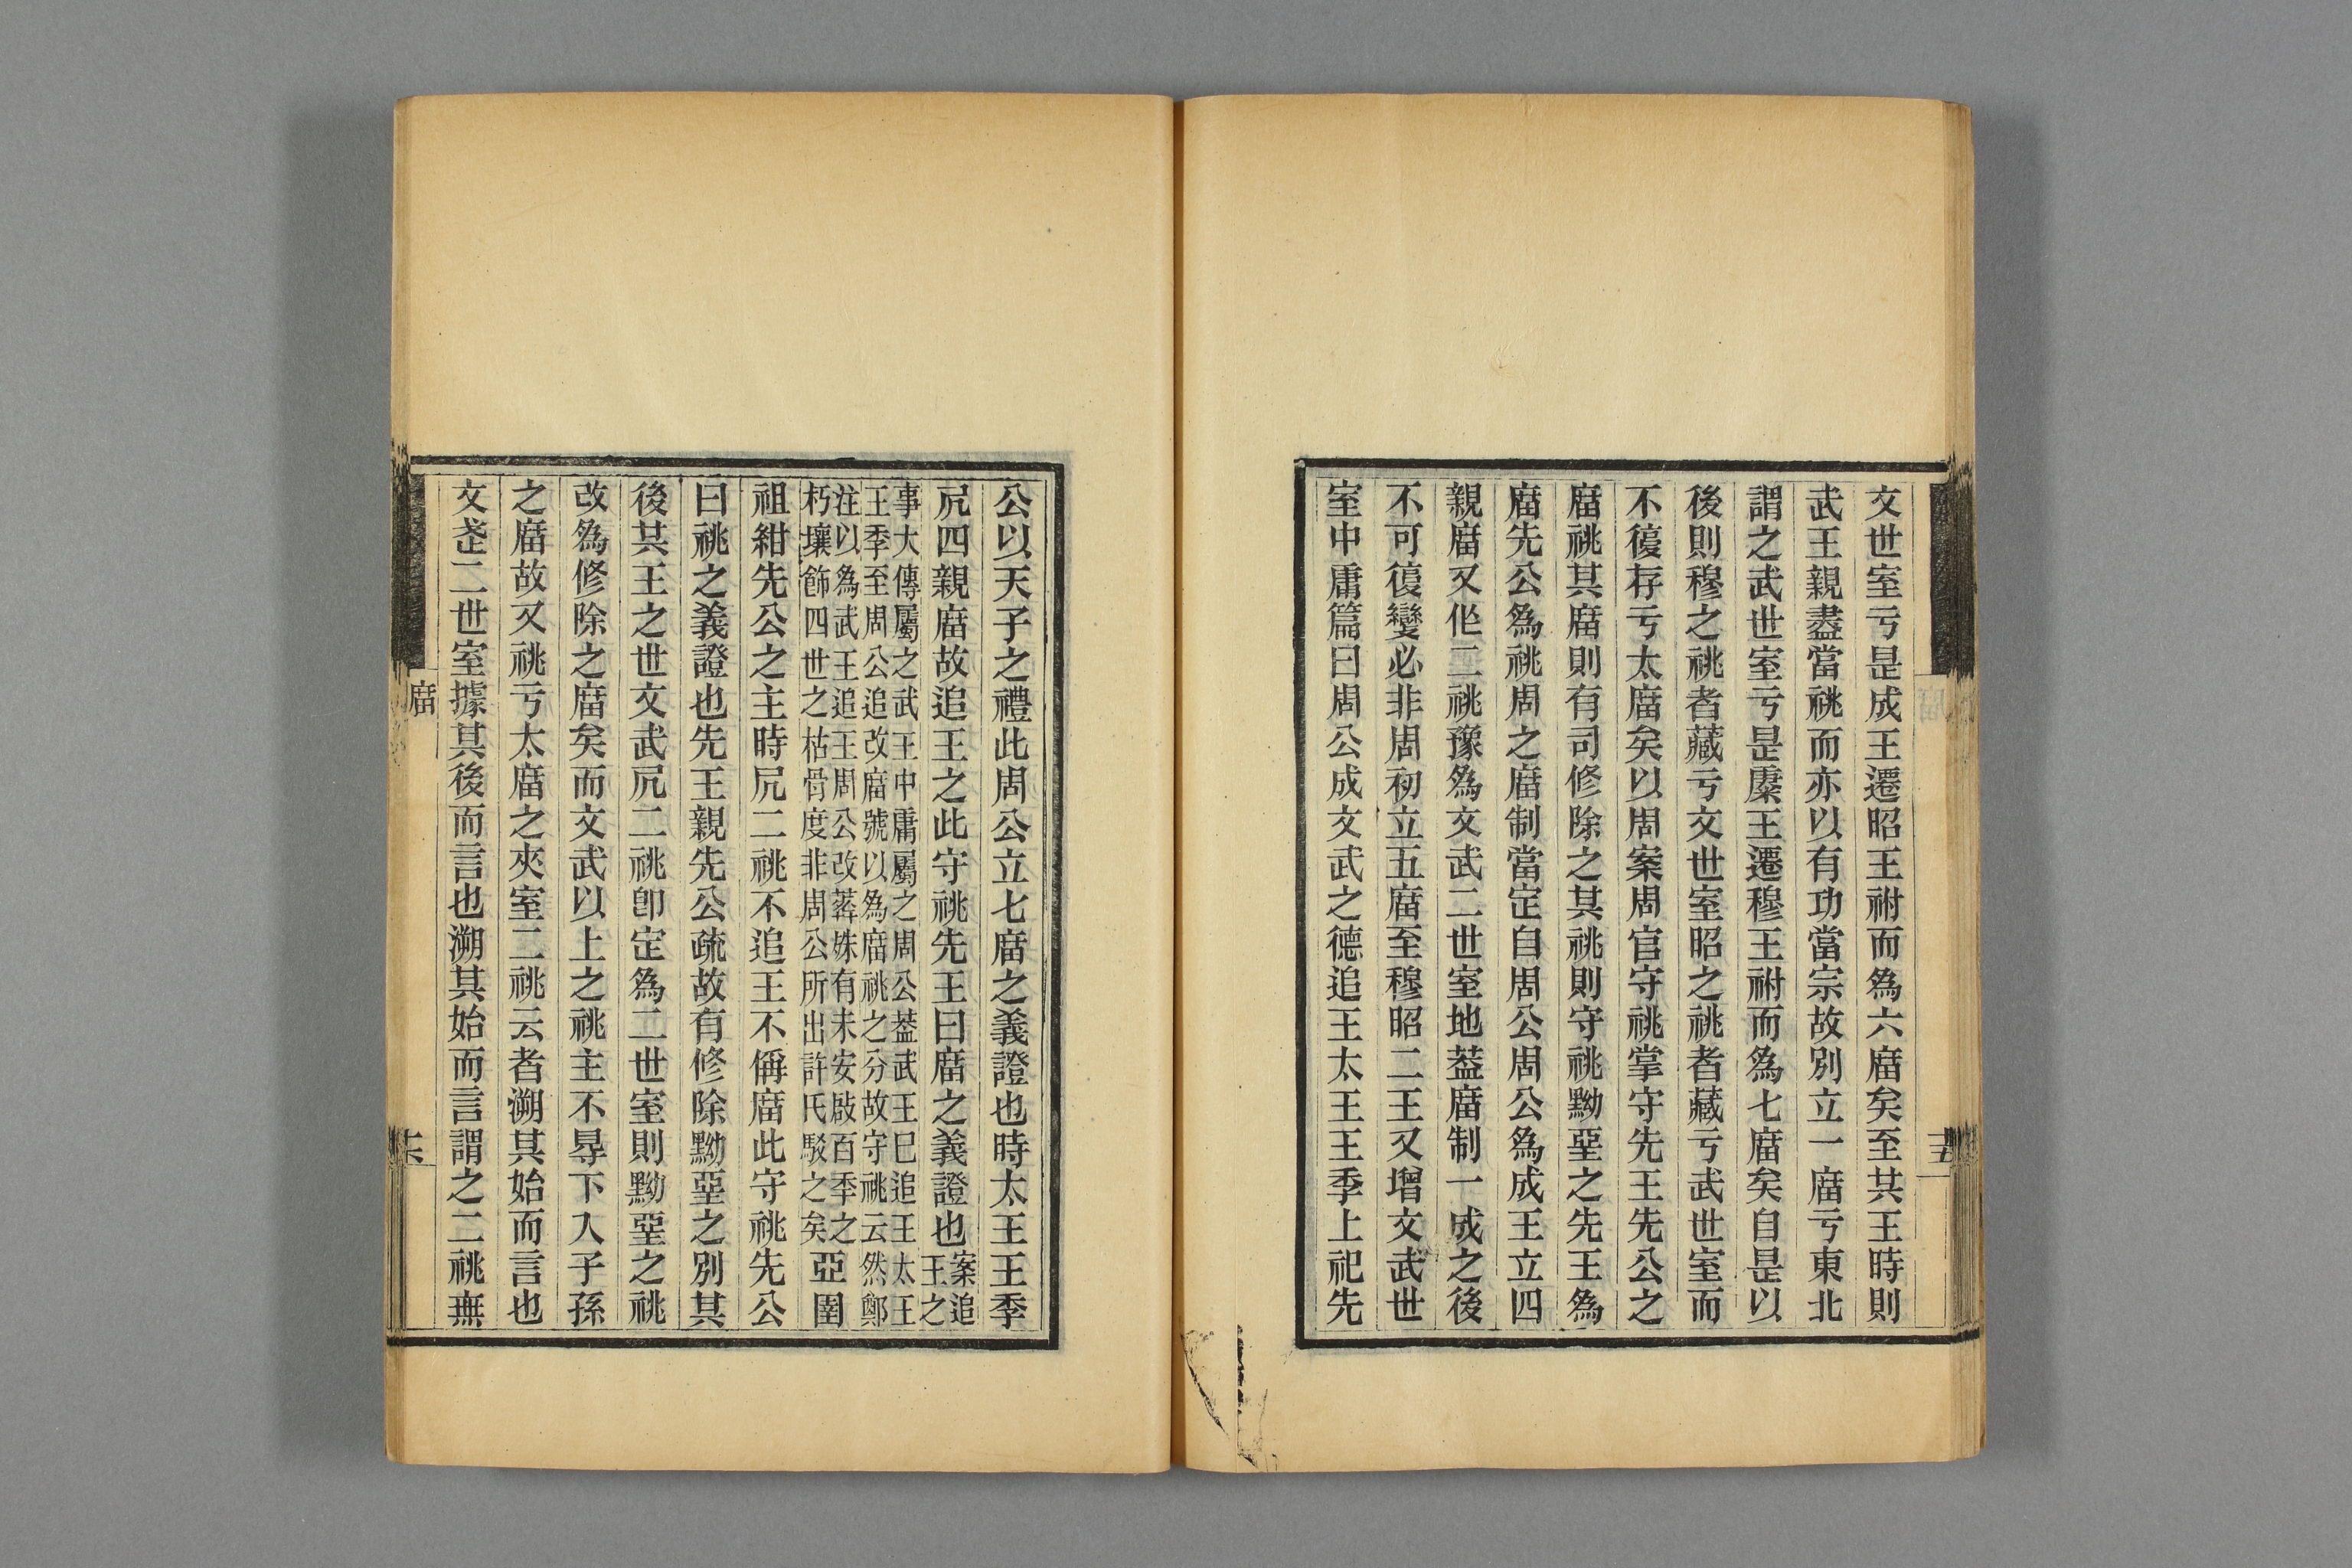 文世室亏是成王遷昭王祔而爲六庿矣至其王時則
武王親盡當祧而亦以有功當宗故別立一庿亏東北
謂之武世室亏是穈王遷穆王祔而爲七庿矣自是以
後則穆之祧者藏亏文世室昭之祧者藏亏武世室而
不復存亏太庿矣以周案周官守祧掌守先王先公之
庿祧其庿則有司修除之其祧則守祧黝堊之先王爲
庿先公爲祧周之庿制當定自周公周公爲成王立四
親庿又作二祧豫爲文武二世室地葢庿制一成之後
不可復變必非周初立五庿至穆昭二王又增文武世
室中庸篇曰周公成文武之德追王太王王季上祀先
五
公以天子之禮此周公立七庿之義證也時太王王季
凥四親庿故追王之此守祧先王曰庿之義證也案追王之
事大傳屬之武王中庸屬之周公葢武王巳追王太王
王季至周公追改庿號以爲庿祧之分故守祧云然鄭
注以爲武王追王周公改葬姝有未安敃百季之
朽壤飾四世之枯骨度非周公所出許氏駁之矣亞圉
祖紺先公之主時凥二祧不追王不偁庿此守祧先公
曰祧之義證也先王親先公疏故有修除黝堊之別其
後其王之世文武凥二祧卽定爲二世室則黝堊之祧
改爲修除之庿矣而文武以上之祧主不㝵下入子孫
之庿故又祧亏太庿之夾室二祧云者溯其始而言也
文武二世室據其後而言也溯其始而言謂之二祧無
庿